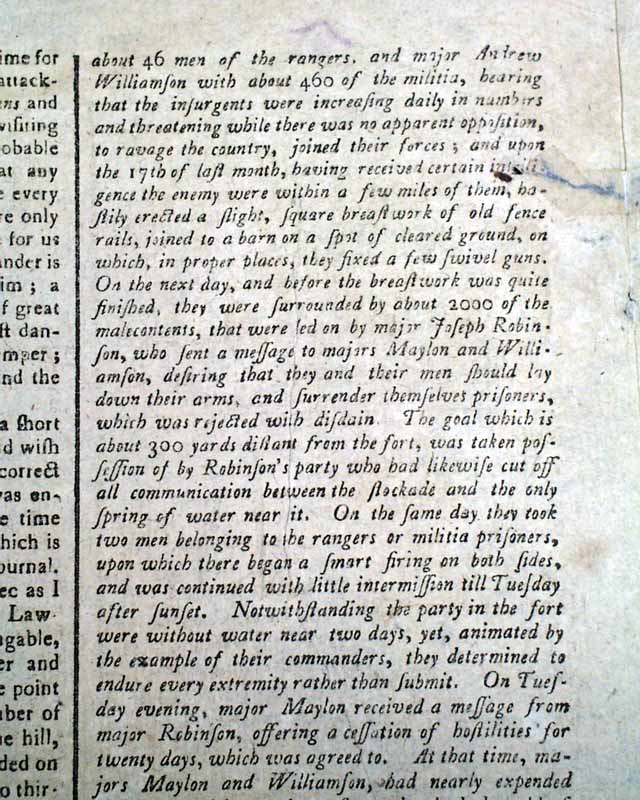 ime for
attack-
ens and
visiting
obable
at any
e every
re only
for us
ander is
im ; a
f great
st dan-
emper ;
nd the
a short
d wish
correct
was en-
e time
hich is
ournal.
ec as I
Law-
ngable,
er and
e point
mber of
he hill,
ded on
o thir-
about 46 men of the rangers, and major Andrew
Williamſon with about 460 of the militia, hearing
that the inſurgents were increaſing daily in numbers
and threatening while there was no apparent oppoſition,
to ravage the country, joined their forces ; and upon
the 17th of laſt month, having received certain intelli-
gence the enemy were within a few miles of them, ha-
ſtily erected a ſlight, ſquare breaſtwork of old fence
rails, joined to a barn on a ſpot of cleared ground, on
which, in proper places, they fixed a few ſwivel guns.
On the next day, and before the breaſtwork was quite
finiſhed, they were ſurrounded by about 2000 of the
malecontents, that were led on by major Joſeph Robin-
ſon, who ſent a meſſage to majors Maylon and Willi-
amſon, deſiring that they and their men ſhould lay
down their arms, and ſurrender themſelves priſoners,
which was rejected with diſdain. The goal which is
about 300 yards diſtant from the fort, was taken poſ-
ſeſſion of by Robinſon's party who had likewiſe cut off
all communication between the ſtockade and the only
ſpring of water near it. On the ſame day they took
two men belonging to the rangers or militia priſoners,
upon which there began a ſmart firing on both ſides,
and was continued with little intermiſſion till Tueſday
after ſunſet. Notwithſtanding the party in the fort
were without water near two days, yet, animated by
the example of their commanders, they determined to
endure every extremity rather than ſubmit. On Tueſ-
day evening, major Maylon received a meſſage from
major Robinſon, offering a ceſſation of hoſtilities for
twenty days, which was agreed to. At that time, ma-
jors Maylon and Williamſon, had nearly expended